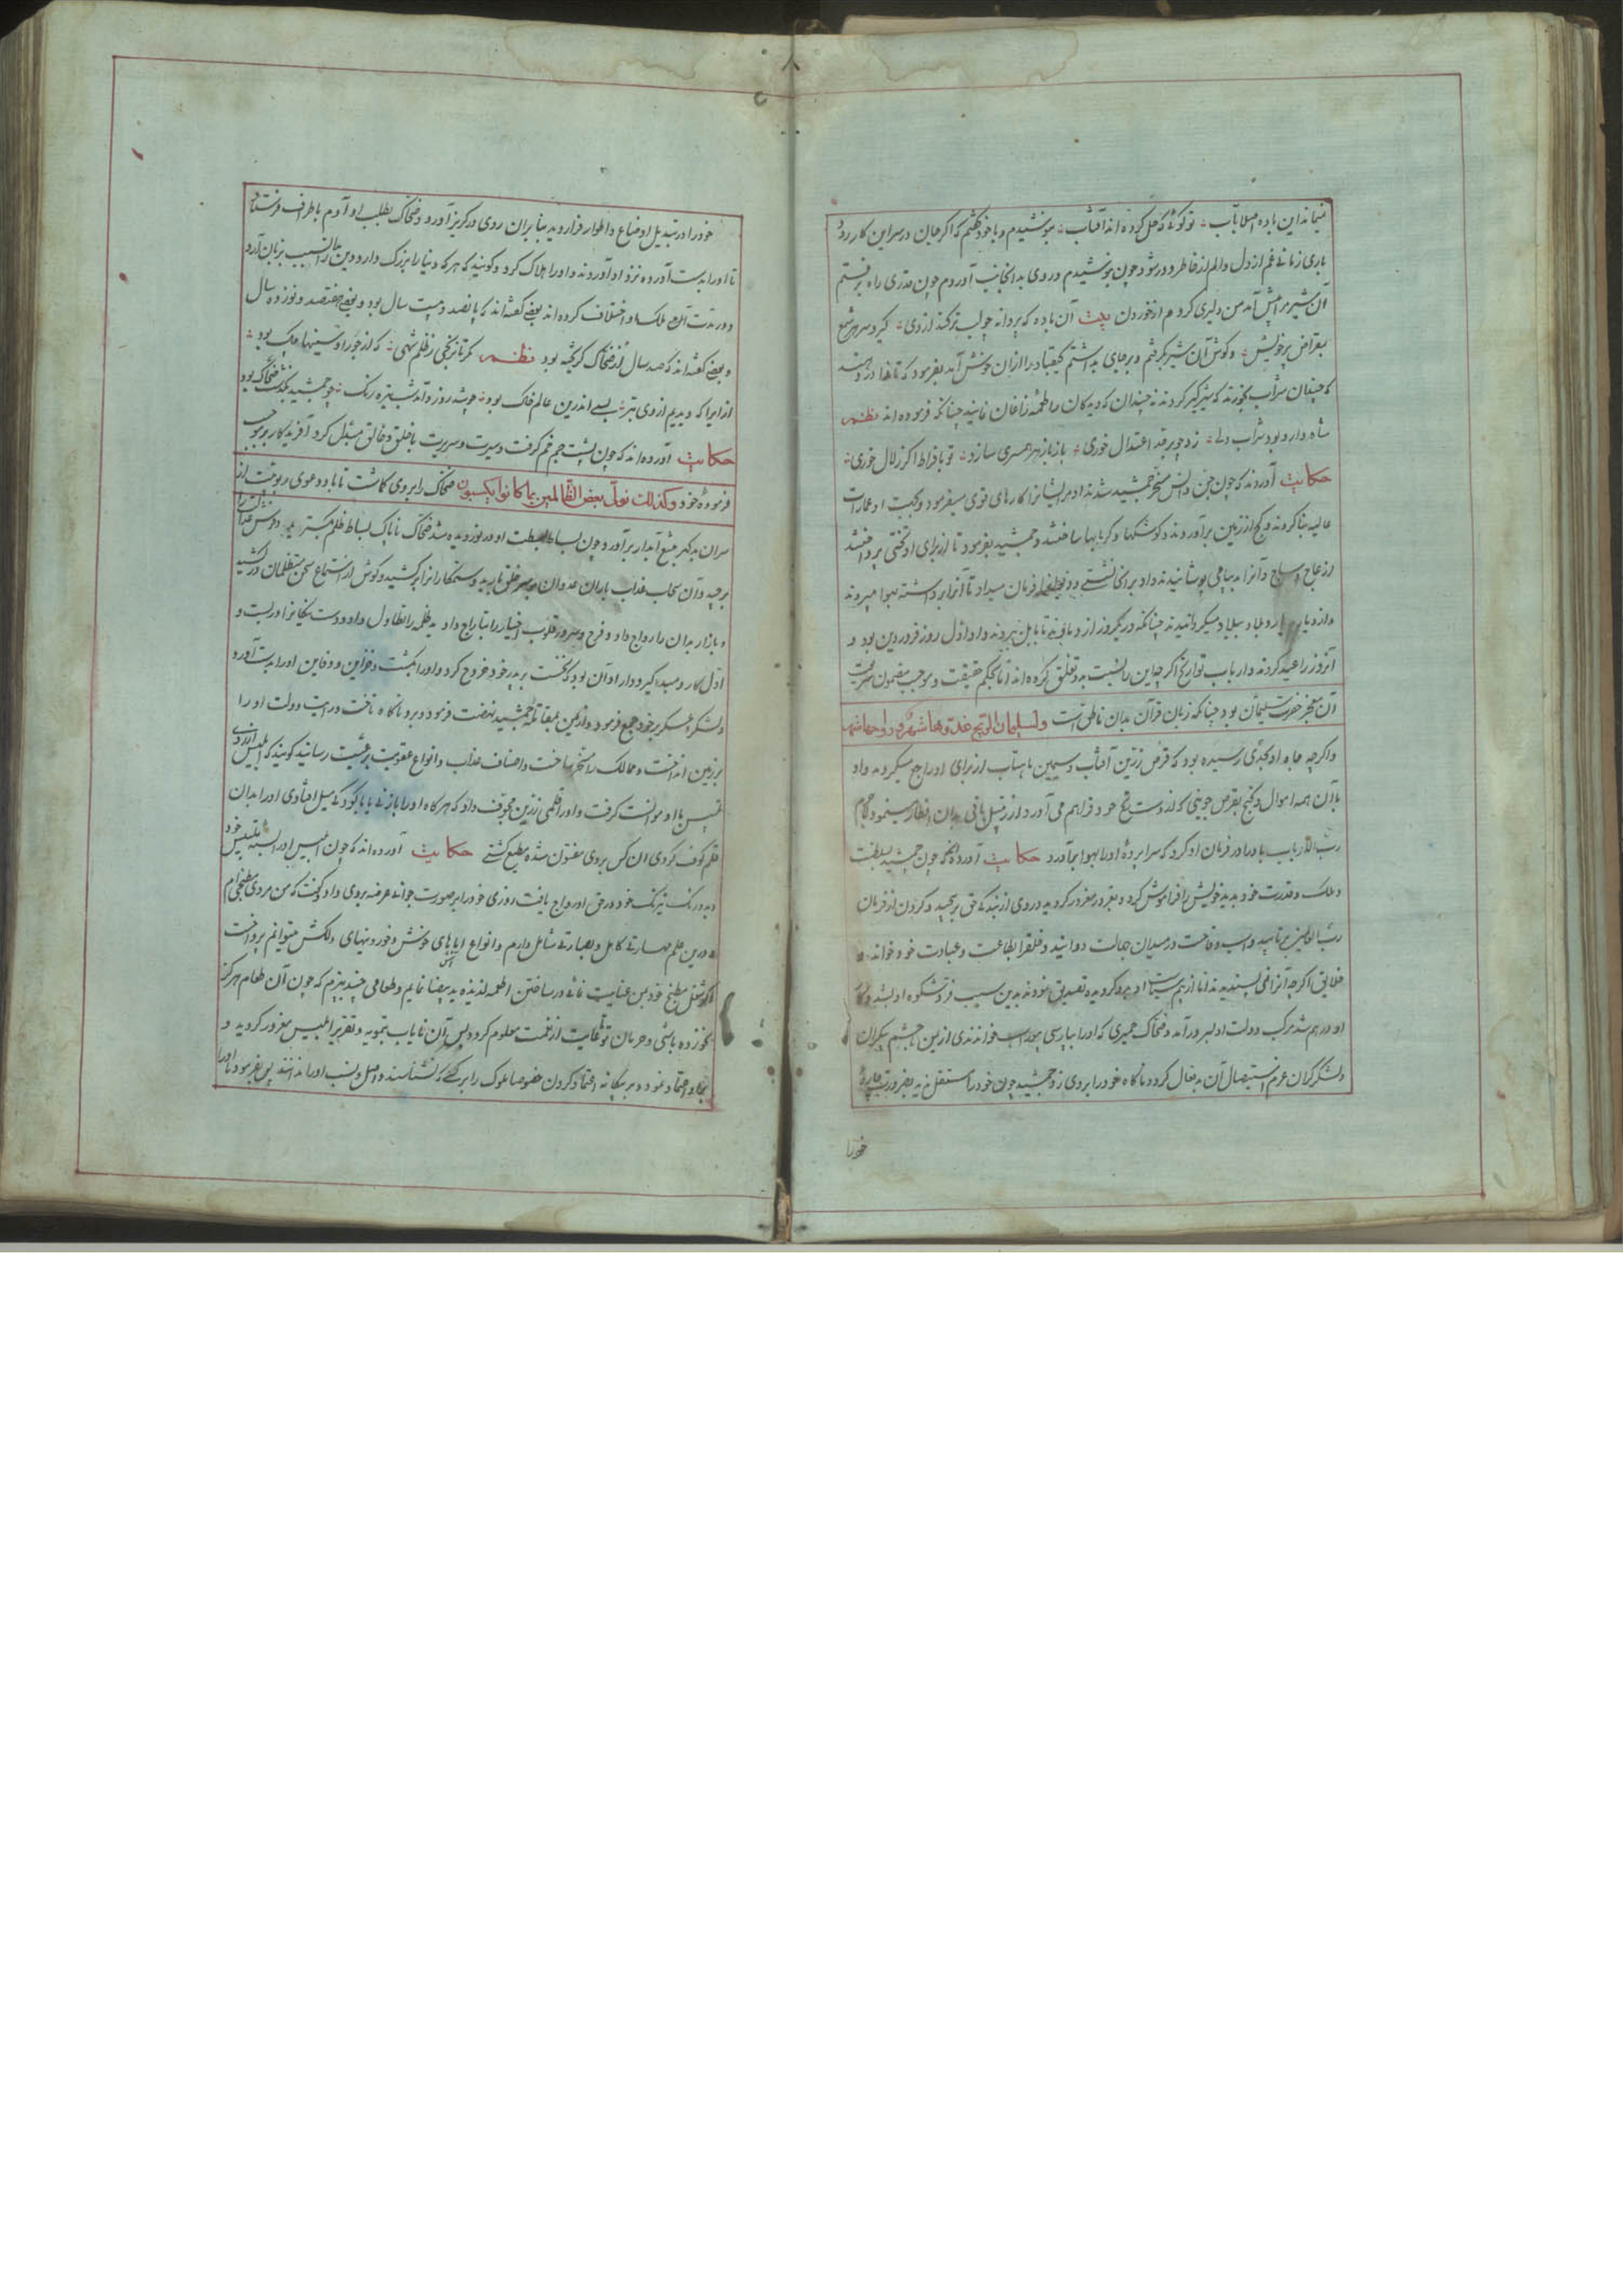 نمیاند این باده اصلا بآب ؞ تو گوئی که حل کرده اند آفتاب ؞ بنوشیدم و با خود گفتم که اگر جان در سر این کار رود
باری زمانی غم از دل و الم از خاطر دور شود چون بنوشیدم و روی بدانجانب آوردم چون قدری راه برفتم
آن شیر مرا پیش آمد من دلیری کردم از خوردن بیت آن باده که پروانه چو لب تر کند از وی ؞ گیرد سر هر شمع
بمقراض پر خویش ؞ و گوش آن شیر گرفتم و بر جای بداشتم کیقباد را از آن خوش آمد بفرمود که تا ندا در دهند
که چندان شراب بخورند که شیر گیر گردند نه چندان که دیدگان را طعمه زاغان نمایند چنانکه فرموده اند نظم
شاه دارو بود شراب ولی ؞ زو چو بر قدر اعتدال خوری ؞ باز با زهر همسری سازد ؞ تو بافراط اگر زلال خوری ؞
حکایت آوردند که چون جن و انس مسخر جمشید شدند او ایشانرا کارهای قوی میفرمود و بجهت او عمارات
عالیه بنا کردند و گچ از زمین برآوردند و کوشکها و گرمابها ساختند و جمشید بفرمود تا از برای او تختی پرداختند
از عاج و ساج و آنرا بدیباهی پوشانیدند و او بر آنجا نشستی و دیوانرا فرمان میداد تا آنرا برداشته بهوا میبردند
و از دیار بدیار و بلاد ببلاد میگردانیدند چنانکه در یکروز از دماوند تا بابل بردند و او اول روز فروردین بود و
آنروز را عید کردند و ارباب تواریخ اگر چه این را نسبت بدو تعلق کرده اند اما بحکم حقیقت و موجب مضمون معجزت
آن معجز حضرت سلیمان بود چنانکه زبان قرآن بدان ناطق است ولسلیمان الریح غدوها شهر ورواحها شهر
و اگر چه جاه او بحدی رسیده بود که قرص زرین آفتاب و سیمین ماهتاب از برای او رایج میکردند و او
با آن همه اموال و گنج بقرص جوینی که از دست رنج خود فراهم می آورد از زنبیل بافی بدان افطار مینمود لاجرم
رب الارباب باد را در فرمان او کرد که سراپرده او را بهوا برآورد حکایت آورده اند که چون جمشید سلطنت
و ملک و قدرت خود بدید خویش را فراموش کرد و بغرور مغرور گردید و روی از بندگی حق بپیچید و گردن از فرمان
رب العالمین بتابید و اسب وقاحت در میدان جهالت دوانید و خلق را بطاعت و عبادت خود خواند
خلایق اگر چه آنرا نمی پسندیدند اما از بیم سیاست او بدو گرویده تصدیق نمودند بدین سبب فر و شکوه او بشد و کار
او در هم شد مرکب دولت او بسر درآمد و ضحاک حمیری که او را بپارسی بیوراسب خوانندی از یمن با حشم بیکران
و لشکر گران عزم استیصال آن بدفعال کرد و ناگاه خود را بر وی زد و جمشید چون خود را مستقل ندید بضرورت چاره
خود را
خود را در تبدیل اوضاع و اطوار قرار و بد بنابران روی در گریز آورد و ضحاک بطلب او آدم باطراف فرستاد
تا او را بدست آورده نزد او آوردند و او را هلاک کرد و گویند که هر که دنیا را بزرگ دارد و دین را آسیب بزیان آرد
و در مدت ملک او اختلاف کرده اند بعضی گفته اند که پانصد و بیست سال بود و بعضی هفتصد و نوزده سال
و بعضی گفته اند که صد سال از ضحاک گریخته بود نظم مگر تاریخی ز ظلم شهی ؞ که از جور او سینها چاک بود ؞
از ایرا که دیدیم از وی بتر ؞ بسی اندرین عالم خاک بود ؞ چو شد روز و آمد شب تیره رنگ ؞ چو جمشید بگذشت ضحاک بود
حکایت آورده اند که چون پشت جم خم گرفت و سیرت و سریرت با خلق و خالق مبدل کرد آفریدگار بر موجب
فرموده خود وکذلک نولی بعض الظالمین بما کانوا یکسبون ضحاک را بر وی گماشت تا باد دعوی و نخوت از
سران بدگهر بتیغ آبدار برآورد و چون بساط سلطنت او در نوردیده شد ضحاک ناپاک بساط ظلم بگسترید
برجهید و آن سحاب عذاب باران عدوان بر سر خلق بارید و ستمکارانرا برکشید و گوش از استماع سخن متظلمان درکشید
و بازار بدان را رواج داد و فرح و سرور قلوب اخیار را بتاراج داد ید ظلمه را تطاول داد و دست نیکانرا دربست و
اول کار و مبدء گیر و دار او آن بود که نخست بر پدر خود خروج کرد و او را بکشت و خزاین و دفاین او را بدست آورد
و لشکر و عسکر بر خود جمع فرمود و از یمن بمقاتله جمشید نهضت فرمود و بر وی ناگاه تاخت و رایت دولت او را
بر زمین انداخت و ممالک را مسخر ساخت و اصناف عذاب و انواع عقوبت برعیت رسانید گویند که ابلیس از روی
تلبیس با او موانست گرفت و او را قلمی زرین مجوف داد که هر گاه او را با زنی یا با کودکی میل افتادی او را بدان
قلم پف کردی آن کس بر وی مفتون شده مطیع گشتی حکایت آورده اند که چون ابلیس او را بسته تلبیس خود
دید و رنگ نیرنگ خود در حق او رواج یافت روزی خود را بر صورت جوانی عرضه بر وی داد و گفت که من مردی مطبخی ام
و در این علم مهارتی کامل و بصارتی شامل دارم و انواع اباهای خوش و خوردنیهای دلکش میتوانم پرداخت
اگر شغل مطبخ خود بمن عنایت نمائی در ساختن اطعمه لذیذه ید بیضا نمایم و طعامی چند بپزم که چون آن طعام هرگز
نخورده باشی و حرمان تو تا غایت از نعمت معلوم گردد پس آن نایاب بتمویه و تقریر ابلیس مغرور گردید و
بر او اعتماد نمود و بر بیگانه اعتماد کردن خصوصا ملوک را بر کسی که نشناسند و اصل و نسب او را ندانند پس بفرمود تا او را